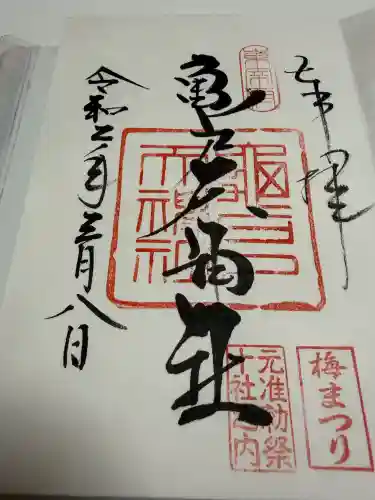 奉拝
東宰府
亀戸天神社
亀戸
天神社
令和二年三月八日
梅まつり
元准勅祭
十社之内